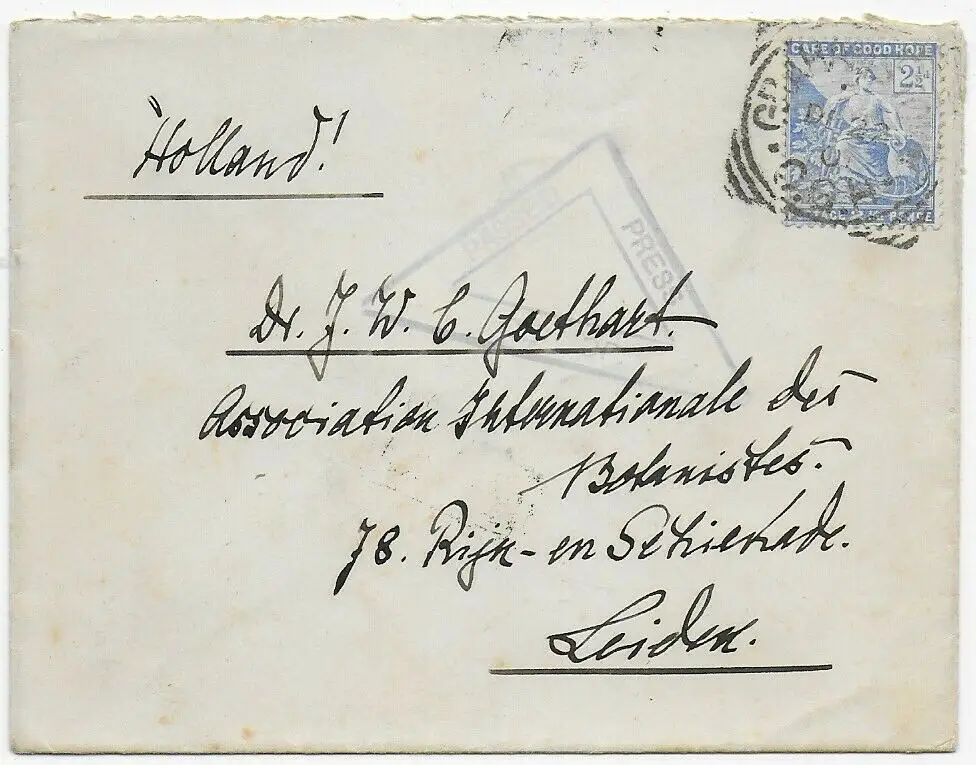 Holland!
CAPE OF GOOD HOPE
2½d
PASSED
PRESS
Dr. J. W. C. Goethart.
Association Internationale des
Botanistes.
78. Rijn- en Schiekade.
Leiden.